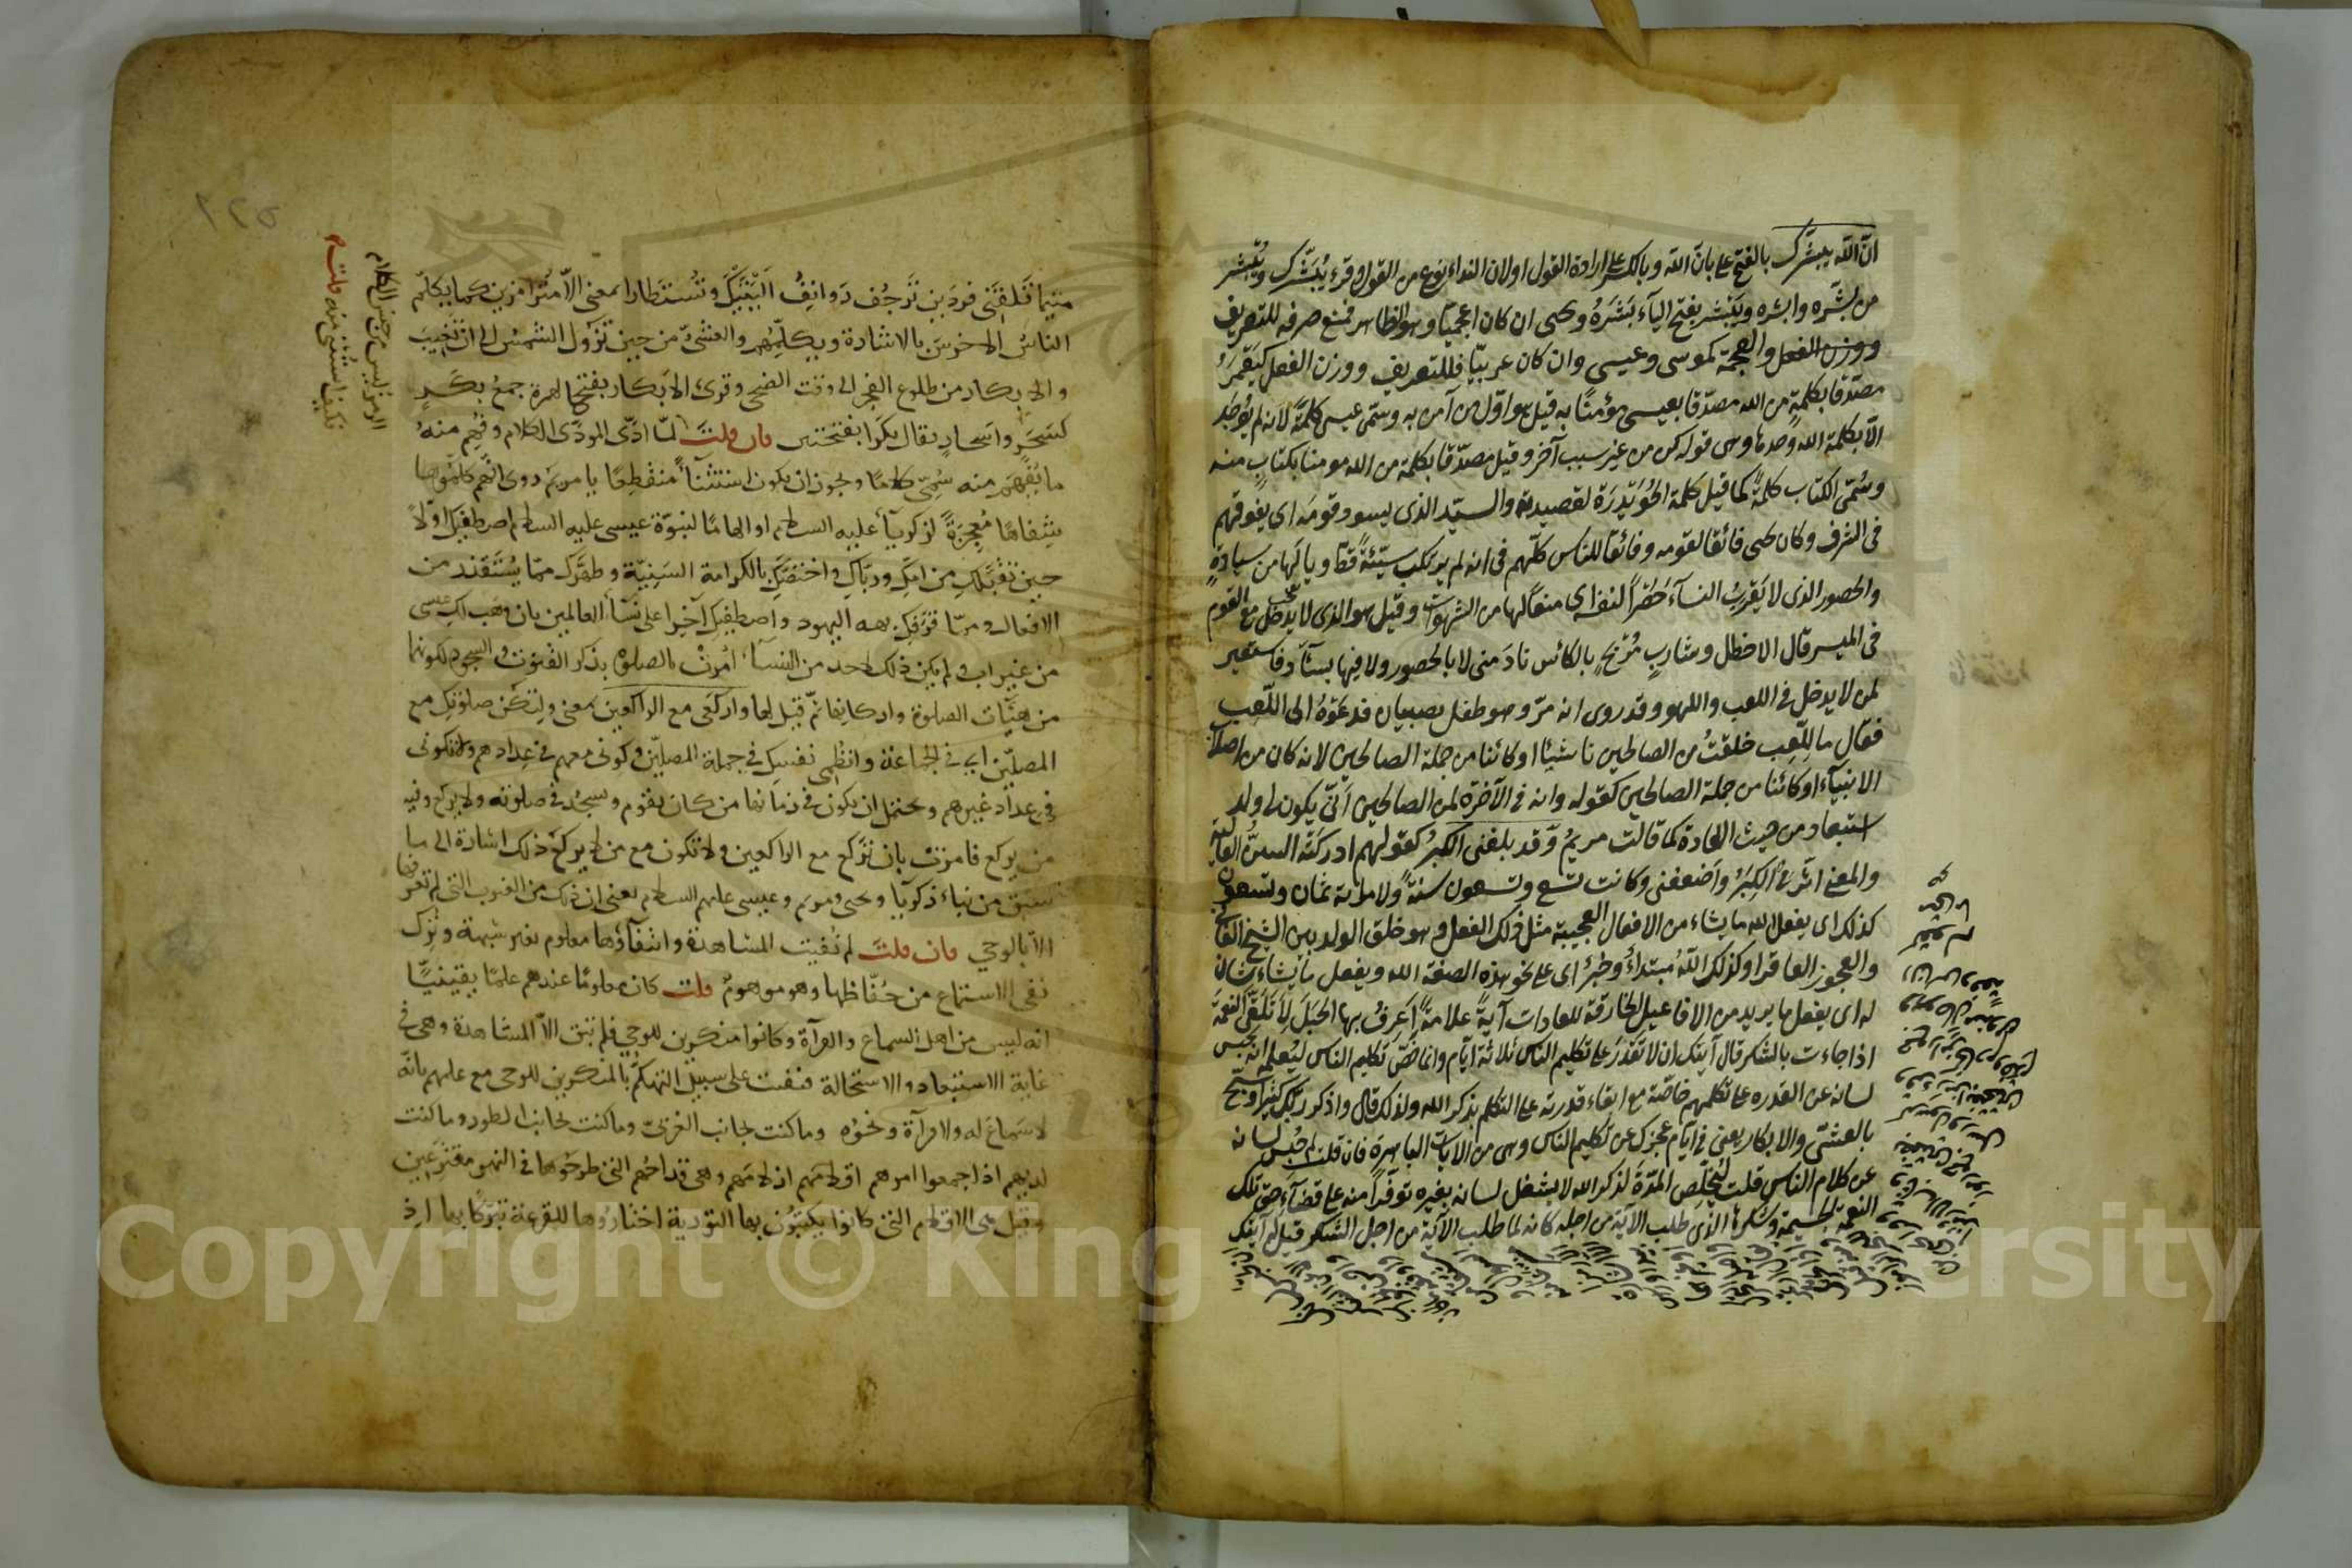 انّ الله يبشّرك بالفتح على بانّ الله وبالكسر على ارادة القول او لان النداء نوع من القول وقرئ يُبَشِّرك ويُبْشِر
من بشّره وابشره ويَبْشر بفتح اليآء بَشَرَهُ ويحيى ان كان اعجميّا وهو الظاهر فمنع صرفه للتعريف
والعجمة كموسى وعيسى وان كان عربيّا فللتعريف ووزن الفعل كيَعْمَرُ
مصدّقا بكلمةٍ من الله مصدّقا بعيسى مؤمنًا به قيل هو اوّل من آمن به وسمّى عيسى كلمةً لانه لم يُوجَد
الاّ بكلمة الله وحدها وهى قوله كن من غير سبب آخر وقيل مصدّقا بكلمة من الله مومنا بكتابٍ منه
وسُمّى الكتاب كلمةً كما قيل كلمة الحُوَيْدِرَة لقصيدته والسيّد الذى يسود قومَه اى يفوقهم
فى الشرف وكان يحيى فائقا لقومه وفائقا للناس كلّهم فى انه لم يرتكب سيّئةً قطّ ويا لَها من سيادةٍ
والحصور الذى لا يَقْرَبُ النسآءَ حَصْرًا لنفسه اى منعًا لها من الشهوات وقيل هو الذى لا يدخل مع القوم
فى الميسر قال الاخطل وشاربٍ مُرْبحٍ بالكأس نادَمنى لا بالحصور ولا فيها بسآّرٍ فاستعير
لمن لا يدخل فى اللعب واللهو وقد روى انه مرّ وهو طفل بصبيان فدعَوْهُ الى اللّعِب
فقال ما لِلَّعِب خلقتُ من الصالحين ناشيئا او كائنا من جملة الصالحين لانه كان من اصلاب
الانبيآء او كائنا من جملة الصالحين كقوله وانه فى الآخرة لمن الصالحين أنّى يكون لى ولد
استبعاد من حيث العادة كما قالت مريمُ وقد بلغنى الكبرُ كقولهم ادركَتْه السنُّ العالية
والمعنى اثّر فىّ الكِبَرُ وأضعفنى وكانت تسع وتسعون سنةً ولامرأته ثمان وتسعون
كذلك اى يفعل الله ما يشاء من الافعال العجيبة مثل ذلك الفعل وهو خلق الولد بين الشيخ الفانى
والعجوز العاقر او كذلك اللهُ مبتدأٌ وخبرٌ اى على نحو هذه الصفة الله ويفعل ما يشاء بيان
له اى يفعل ما يريد من الافاعيل الخارقة للعادات آيةً علامةً أعرِفُ بها الحبَلَ لأتلقّى النعمةَ
اذا جاءت بالشكر قال آيتك ان لا تقدَر على تكليم الناس ثلاثة أيّام وانما خَصّ تكليم الناس ليُعلمه انه يحبس
لسانه عن القدره على تكلمهم خاصّة مع ابقاء قدرته على التكلم بذكر الله ولذلك قال واذكر ربّك كثيرا وسبّح
بالعشىّ والابكار يعنى فى ايّام عجزك عن تكليم الناس وهى من الآيات الباهرة فان قلت لم حُبِس لسانه
عن كلام الناس قلت ليُخلّص المدّةَ لذكر الله لا يشغل لسانه بغيره توفّرًا منه على قضآء حقّ تلك
النعمة الجسيمة وشكرها الذى طلب الآية من اجله كانه لما طلب الآية من اجل الشكر قيل له آيتك
متى ما تَلقَنى فردَين ترجُف رَوانِفُ اَلْيَتَيْك وتُسْتطارا بمعنى الاّ مُترامزين كما يكلّم
الناسُ الاخرسَ بالاشارة ويكلّمُهم والعشىّ من حين تزُول الشمسُ الى ان تغيبَ
والابكار من طلوع الفجر الى وقت الضحى وقرئ الابكار بفتح الهمزة جمعُ بكَرٍ
كسَحَرٍ واسحارٍ يقال بكَرا بفتحتين فان قلتَ لمّا ادّى المودّى الكلام وفُهِم منهُ
ما يُفهَم منه سُمّى كلامًا ويجوز ان يكون استثنآءً منقطِعًا يا مريمُ روى انّهم كلّموها
شِفاهًا مُعجِزةً لزكريآ عليه السلام او ارهاصًا لنبوّة عيسى عليه السلام اصطفيك اوّلاً
حين تقبّلكِ من امّكِ وربّاكِ واختصّكِ بالكرامة السَنِيّة وطهّرك ممّا يُستقذر من
الافعال وممّا قرَفكِ به اليهود واصطفيك آخِرا على نسآء العالمين بان وهَب لك عيسى
من غير اب ولم يكن ذلك لاحد من النسآء اُمِرَتْ بالصلوة بذكر القنوت والسجود لكونهما
من هيئات الصلوة واركانها ثم قيل لها واركعى مع الراكعين بمعنى ولتكن صلوتكِ مع
المصلّين اى فى الجماعة وانظُمى نفسكِ فى جملة المصلّين وكونى معهم فى عِدادهم ولا تكونى
فى عداد غيرهم ويحتمل ان يكون فى زمانها من كان يقوم ويسجُد فى صلوته ولا يركع وفيه
من يركع فامرَتْ بان تركع مع الراكعين ولا تكون مع من لا يركع ذلك اشارة الى ما
سبق من نباء زكريآ ويحيى ومريم وعيسى عليهم السلام يعنى ان ذلك من الغيوب التى لم تعرفها
الاّ بالوحي فان قلتَ لم نُفيت المشاهدة وانتفآؤها معلوم بغير شبهة وتُرِك
نفى الاستماع من حُفّاظها وهو موهومٌ قلت كان معلومًا عندهم علمًا يقينيّا
انه ليس من اهل السماع والقرآة وكانوا منكرين للوحي فلم تبق الاّ المشاهدة وهى فى
غاية الاستبعاد والاستحالة فنفيت على سبيل التهكّم بالمنكرين للوحى مع علمهم بانّه
لا سَماعَ له ولا قرآة ونحوُه وما كنت بجانب الغربىّ وما كنت بجانب الطور وما كنت
لديهم اذ اجمعوا امرهم اقلامَهم ازلامَهم وهى قداحُهم التى طرحُوها فى النهر مقترعين
وقيل هى الاقلام التى كانوا يكتبُون بها التورية اختارُوها للقرعة تبرّكًا بها اذ
الرمز ليس من جنس الكلام
فكيف استُثنى منه قلت
Copyright © King
ersity